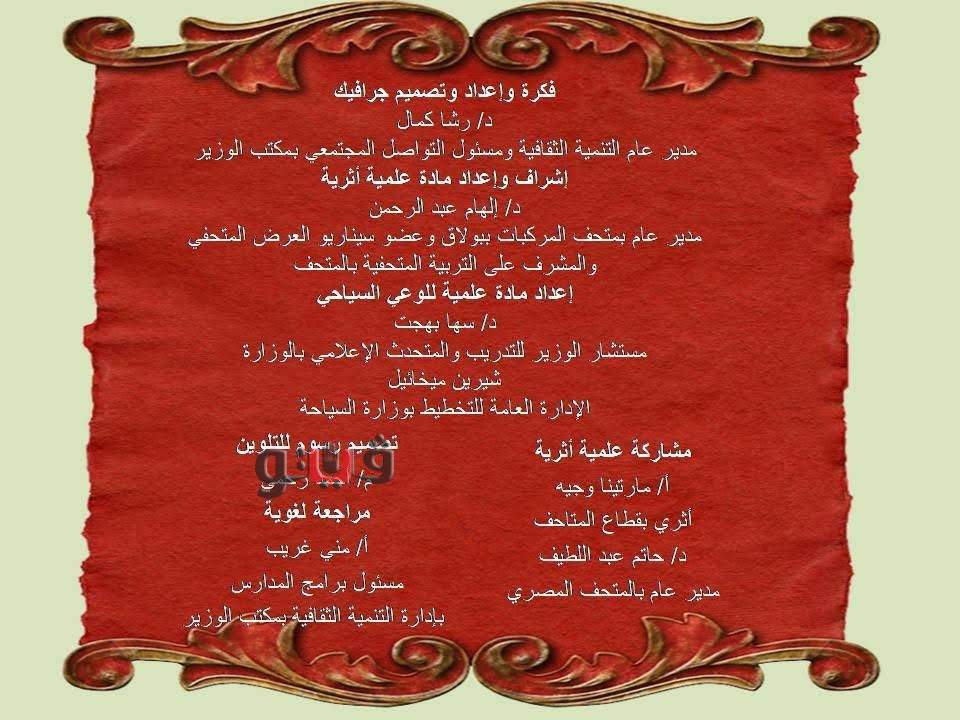 فكرة وإعداد وتصميم جرافيك
د/ رشا كمال
مدير عام التنمية الثقافية ومسئول التواصل المجتمعي بمكتب الوزير
إشراف وإعداد مادة علمية أثرية
د/ إلهام عبد الرحمن
مدير عام بمتحف المركبات ببولاق وعضو سيناريو العرض المتحفي
والمشرف على التربية المتحفية بالمتحف
إعداد مادة علمية للوعي السياحي
د/ سها بهجت
مستشار الوزير للتدريب والمتحدث الإعلامي بالوزارة
شيرين ميخائيل
الإدارة العامة للتخطيط بوزارة السياحة
مشاركة علمية أثرية
أ/ مارتينا وجيه
أثري بقطاع المتاحف
د/ حاتم عبد اللطيف
مدير عام بالمتحف المصري
تصميم رسوم للتلوين
فيتو
م/
مراجعة لغوية
أ/ مني غريب
مسئول برامج المدارس
بإدارة التنمية الثقافية بمكتب الوزير